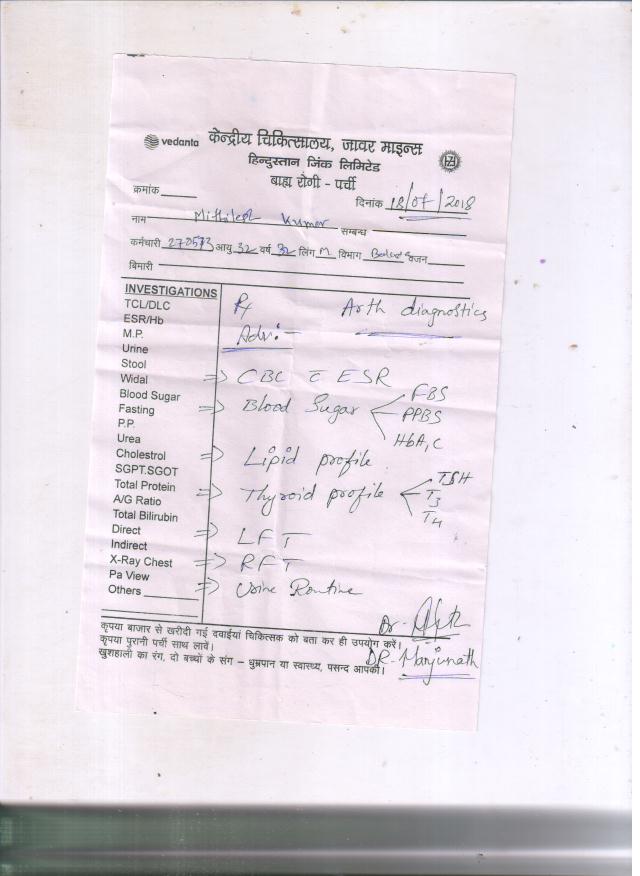 vedanta केन्द्रीय चिकित्सालय, जावर माइन्स
हिन्दुस्तान जिंक लिमिटेड
बाह्य रोगी - पर्ची
क्रमांक
दिनांक 18/07/2018
नाम Mithilesh Kumar सम्बन्ध
कर्मचारी 270573 आयु 32 वर्ष 32 लिंग M विभाग वजन
बिमारी
INVESTIGATIONS
TCL/DLC
ESR/Hb
M.P.
Urine
Stool
Widal
Blood Sugar
Fasting
P.P.
Urea
Cholestrol
SGPT.SGOT
Total Protein
A/G Ratio
Total Bilirubin
Direct
Indirect
X-Ray Chest
Pa View
Others
Rx Arth diagnostics
Adv:-
=> CBC c̄ ESR
=> Blood Sugar < FBS
PPBS
HbA1C
=> Lipid profile
=> Thyroid profile < TSH
T3
T4
=> LFT
=> RFT
=> Urine Routine
Dr.
DR. Manjunath
कृपया बाजार से खरीदी गई दवाईयां चिकित्सक को बता कर ही उपयोग करें।
कृपया पुरानी पर्ची साथ लावें।
खुशहाली का रंग, दो बच्चों के संग - धुम्रपान या स्वास्थ्य, पसन्द आपकी।